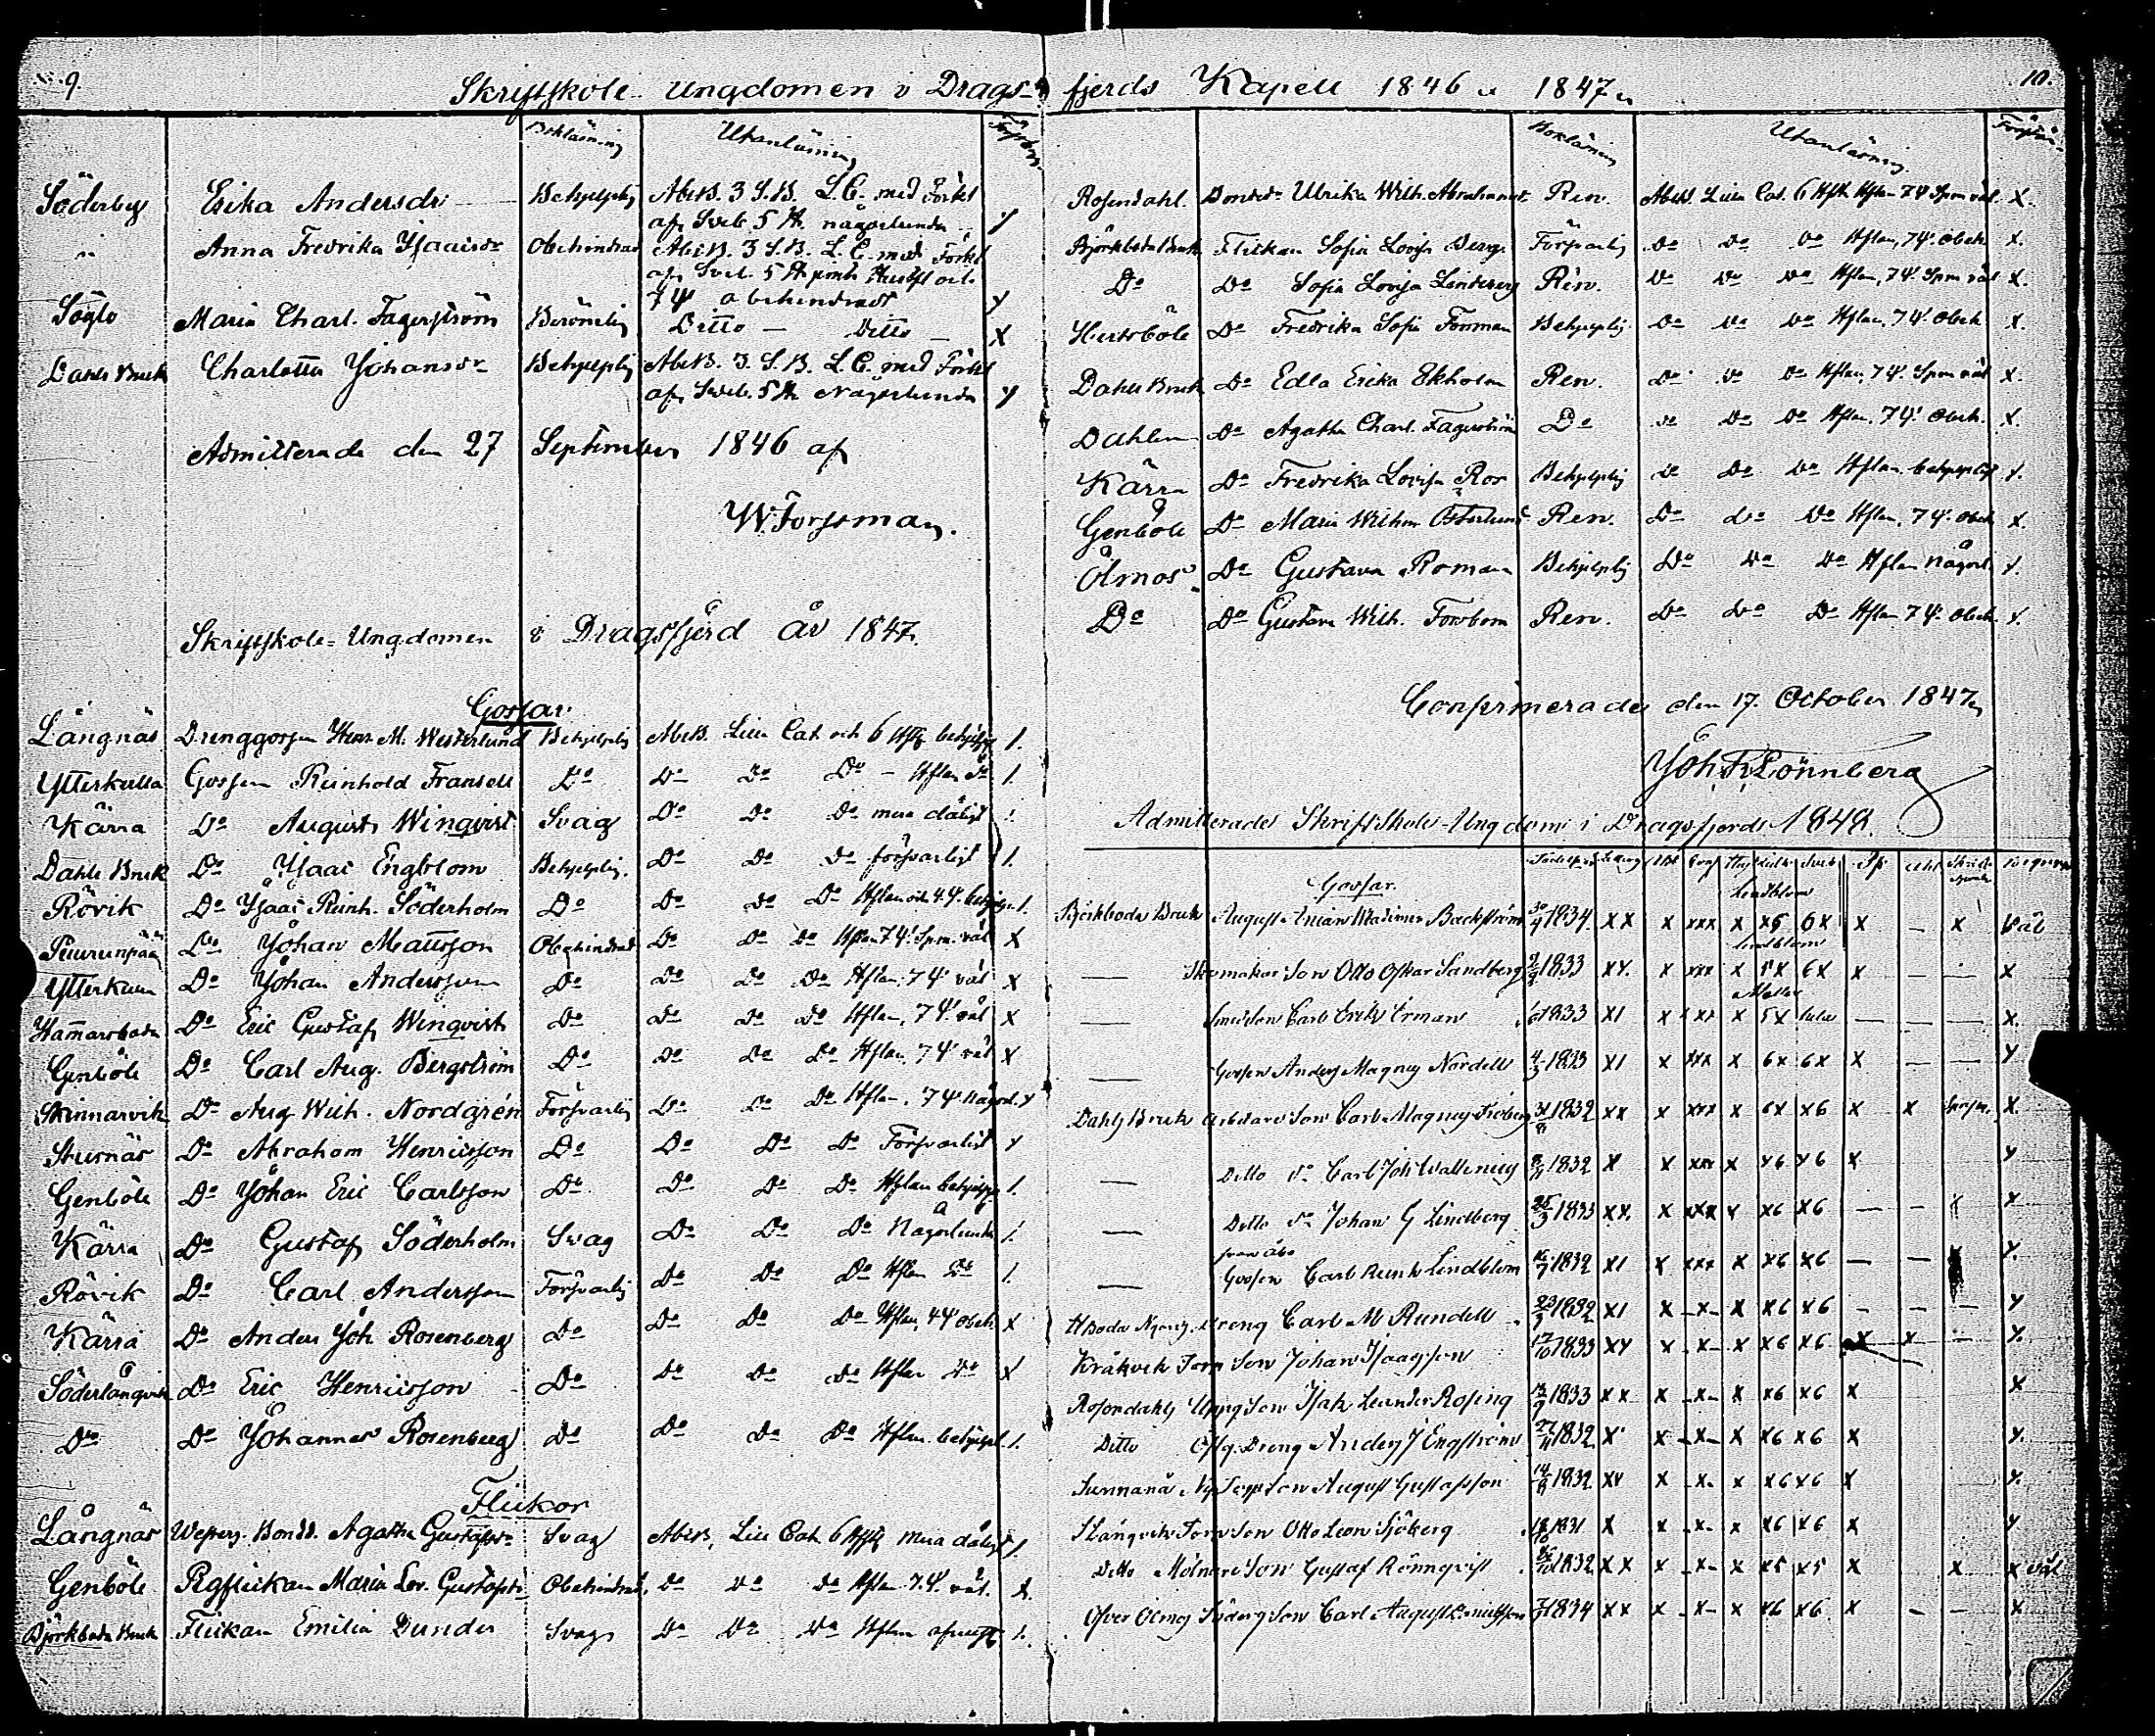 9. Skriftskole-Ungdomen i Dragsfjerds Kapell 1846 & 1847. 10.
Bokläsning Utanläsning
Söderby Erika Andersdr Behjelplig AbcB. 3 S.B. L.C. med Förkl
af Sveb. 5 H. någorlunda y
" Anna Fredrika Isaacsdr Obehindrad AbcB. 3 S.B. L.C. med Förkl
af Sveb. 5 H. samt Hustafl och
7 Ψ obehindradt y
Söglo Maria Charl. Fagerström Berömlig Ditto — Ditto — x
Dahls Bruk Charlotta Johansdr Behjelplig AbcB. 3 S.B. L.C. med Förkl
af Sveb. 5 H. Någorlunda y
Admitterade den 27 September 1846 af
W. Forssman.
Skriftskole-Ungdomen i Dragsfjerd år 1847.
Gossar
Långnäs Drenggossen Henr. M. Westerlund Behjelplig AbcB. Lilla Cat. och 6 Hfst behjelpl 1.
Ytterkulla Gossen Reinhold Franzell Do Do Do Do - Hflan do 1.
Kärra Do August Winqvist Svag Do Do Do mera dåligt
Dahls Bruk Do Isaac Engblom Behjelplig. Do Do Do försvarligt 1.
Rövik Do Isaac Reinh. Söderholm Do Do Do Do Hflan och 4 Ψ. behjelpl. 1.
Do Johan Mattsson Obehindrad Do Do Do Hflan 7 Ψ. Spm. väl x
Ytterkulla Do Johan Andersson Do Do Do Do Hflan, 7 Ψ väl x
Hammarsboda Do Eric Gustaf Winqvist Do Do Do Do Hflan, 7 Ψ. väl x
Genböle Do Carl Aug. Bergström Do Do Do Do Hflan, 7 Ψ väl x
Skinnarvik Do Aug. Wilh. Nordgrén Försvarlig Do Do Do Hflan, 7 Ψ någorl. y
Stusnäs Do Abraham Henricsson Do Do Do Do Försvarligt y
Genböle Do Johan Eric Carlsson Do Do Do Do Hflan behjelpl 1.
Kärra Do Gustaf Söderholm Svag Do Do Do Någorlunda 1.
Rövik Do Carl Andersson Försvarlig Do Do Do Hflan Do 1.
Kärra Do Anders Joh. Rosenberg Do Do Do Do Hflan, 4 Ψ obeh. x
Söderlångvik Do Eric Henricsson Do Do Do Do Hflan Do x
Do Do Johannes Rosenberg Do Do Do Do Hflan behjelpl. 1.
Flickor
Långnäs Agatha Gustafsdr Svag AbcB, Lilla Cat. 6 Hfst mera dåligt 1.
Genböle Pigflickan Maria Lov. Gustafsdr Obehindrad. Do Do Do Hflan 7 Ψ. väl. x.
Björkboda Bruk Flickan Emilia Dunder Svag Do Do Do Hflan 1.
Bokläsning Utanläsning
Rosendahl Bondedr Ulrika Wilh. Abrahamsdr Ren. AbcB. Lilla Cat. 6 Hfst Hflan 7 Ψ Spm väl. x.
Björkboda Bruk Flickan Sofia Lovisa Berg Försvarlig Do Do Do Hflan, 7 Ψ. obeh. x.
Do Do Sofia Lovisa Lindberg Ren. Do Do Do Hflan, 7 Ψ. Spm väl x.
Hertsböle Do Fredrika Sofia Forsman Behjelplig Do Do Do Hflan, 7 Ψ. obeh. x.
Dahls Bruk Do Edla Erika Ekholm Ren. Do Do Do Hflan, 7 Ψ. Spm väl x.
Dahlen Do Agatha Charl. Fagerström Do Do Do Do Hflan, 7 Ψ. obeh. x.
Kärra Do Fredrika Lovisa Ros Behjelplig Do Do Do Hflan behjelpligt y.
Genböle Do Maria Wilhm. Österlund Ren. Do Do Do Hflan, 7 Ψ. obeh x.
Ölmos Do Gustava Roman Behjelplig Do Do Do Hflan någorl. y.
Do Do Gustava Wilh. Forsbom Ren. Do Do Do Hflan 7 Ψ. obeh. y.
Confirmerades den 17. October 1847
Joh. F. Lönnberg
Admitterade Skriftskole-Ungdom i Dragsfjerds 1848.
Gossar. Lindblom
Björkboda Bruk August Wladimir Backström 1834 xx x xxx x x5 6x x - x väl
Lindblom
— Skomakar Son Otto Oskar Sandberg 1833 xx. x xxx x 5x 6x x — — x
— Smed Son Carl Erik Erman 1833 x1 x xxx x 5x — — — x.
— Gossen Anders Magnus Nordell 1833 x1 x xxx x 6x 6x x — — y
Dahls Bruk Arbetare Son Carl Magnus Froberg 1832 xx x xxx x 6x x6 x x x.
— Ditto do Carl Joh Wallenius 1832 x x xxx x x6 x6 x y
— Ditto do Johan G Lindberg 1833 xx. x xxx x x6 x6 — - x
från Åbo
— Gossen Carl Reinh Lindblom 1832 x1 x xxx x x6 x6 — — y.
Dreng Carl M Rundell 1832 x1 x -x- x x6 x6 - — — y
Kråkvik Torp Son Johan Isaacsson 1833 xx x -x- x x6 x6 x x — y.
Rosendahls Son Isak Leander Rosing 1833 xx x -x- x x6 x6 x x
Ditto Dreng Anders J Engström 1832 x x -x- x x6 x6 x y.
Sunnanå Son August Gustafsson 1832 xx x -x- x x6 x6 x y.
SLångvik Torp Son Otto Leon Sjöberg 1831 x x -x- x x6 x6 x y
Ditto Mölnare Son Gustaf Rönnqvist 1832 xx x -x- x x5 x5 x x x väl
Öfver Ölmos Son Carl August 1834 xx x -x- x x6 x6 x — — x